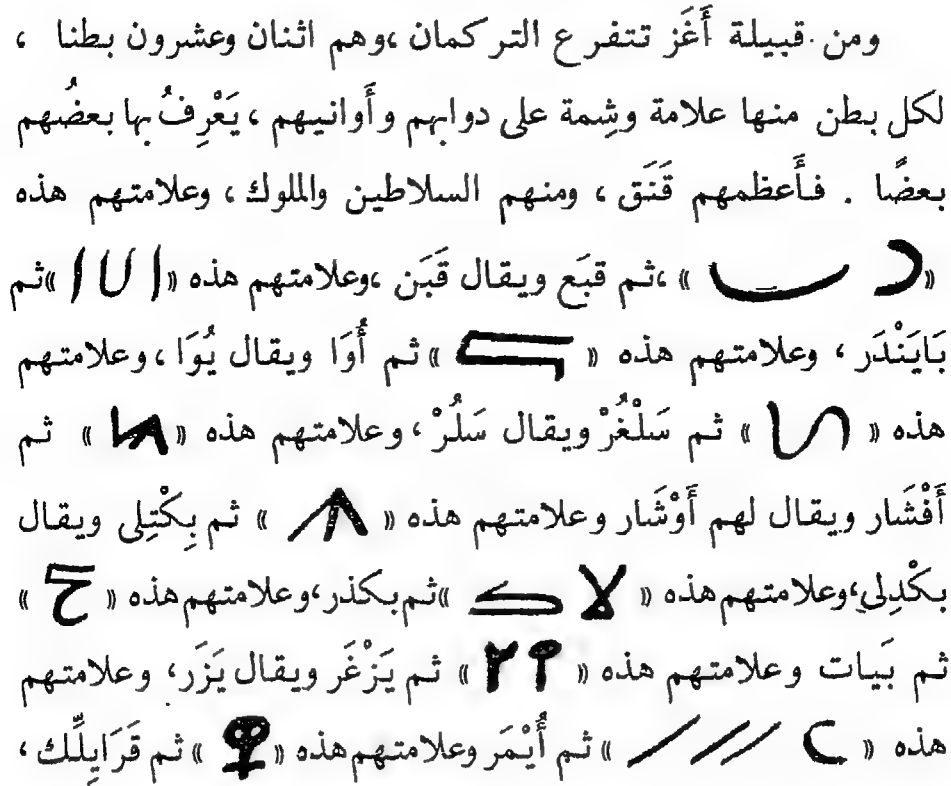 ومن قبيلة أَغَز تتفرع التركمان ،وهم اثنان وعشرون بطنا ،
لكل بطن منها علامة وشِمة على دوابهم وأَوانيهم ، يَعْرِفُ بها بعضُهم
بعضًا . فأَعظمهم قَنَق ، ومنهم السلاطين والملوك ، وعلامتهم هذه
« » ،ثم قبَع ويقال قَبَن ،وعلامتهم هذه « » ثم
بَايَنْدَر ، وعلامتهم هذه « » ثم أُوَا ويقال يُوَا ، وعلامتهم
هذه « » ثم سَلْغُرْ ويقال سَلُرْ ، وعلامتهم هذه « » ثم
أَفْشَار ويقال لهم أَوْشَار وعلامتهم هذه « » ثم بِكْتِلِى ويقال
بكْدِلِى،وعلامتهم هذه « » ثم بكذر ،وعلامتهم هذه « »
ثم بَيات وعلامتهم هذه « » ثم يَزْغَر ويقال يَزَر، وعلامتهم
هذه « » ثم أُيْمَر وعلامتهم هذه « » ثم قَرَايِلِّك ،